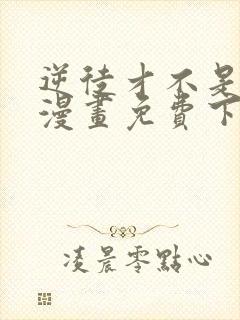 逆徒才不是
漫畫免費下
凌晨零點心